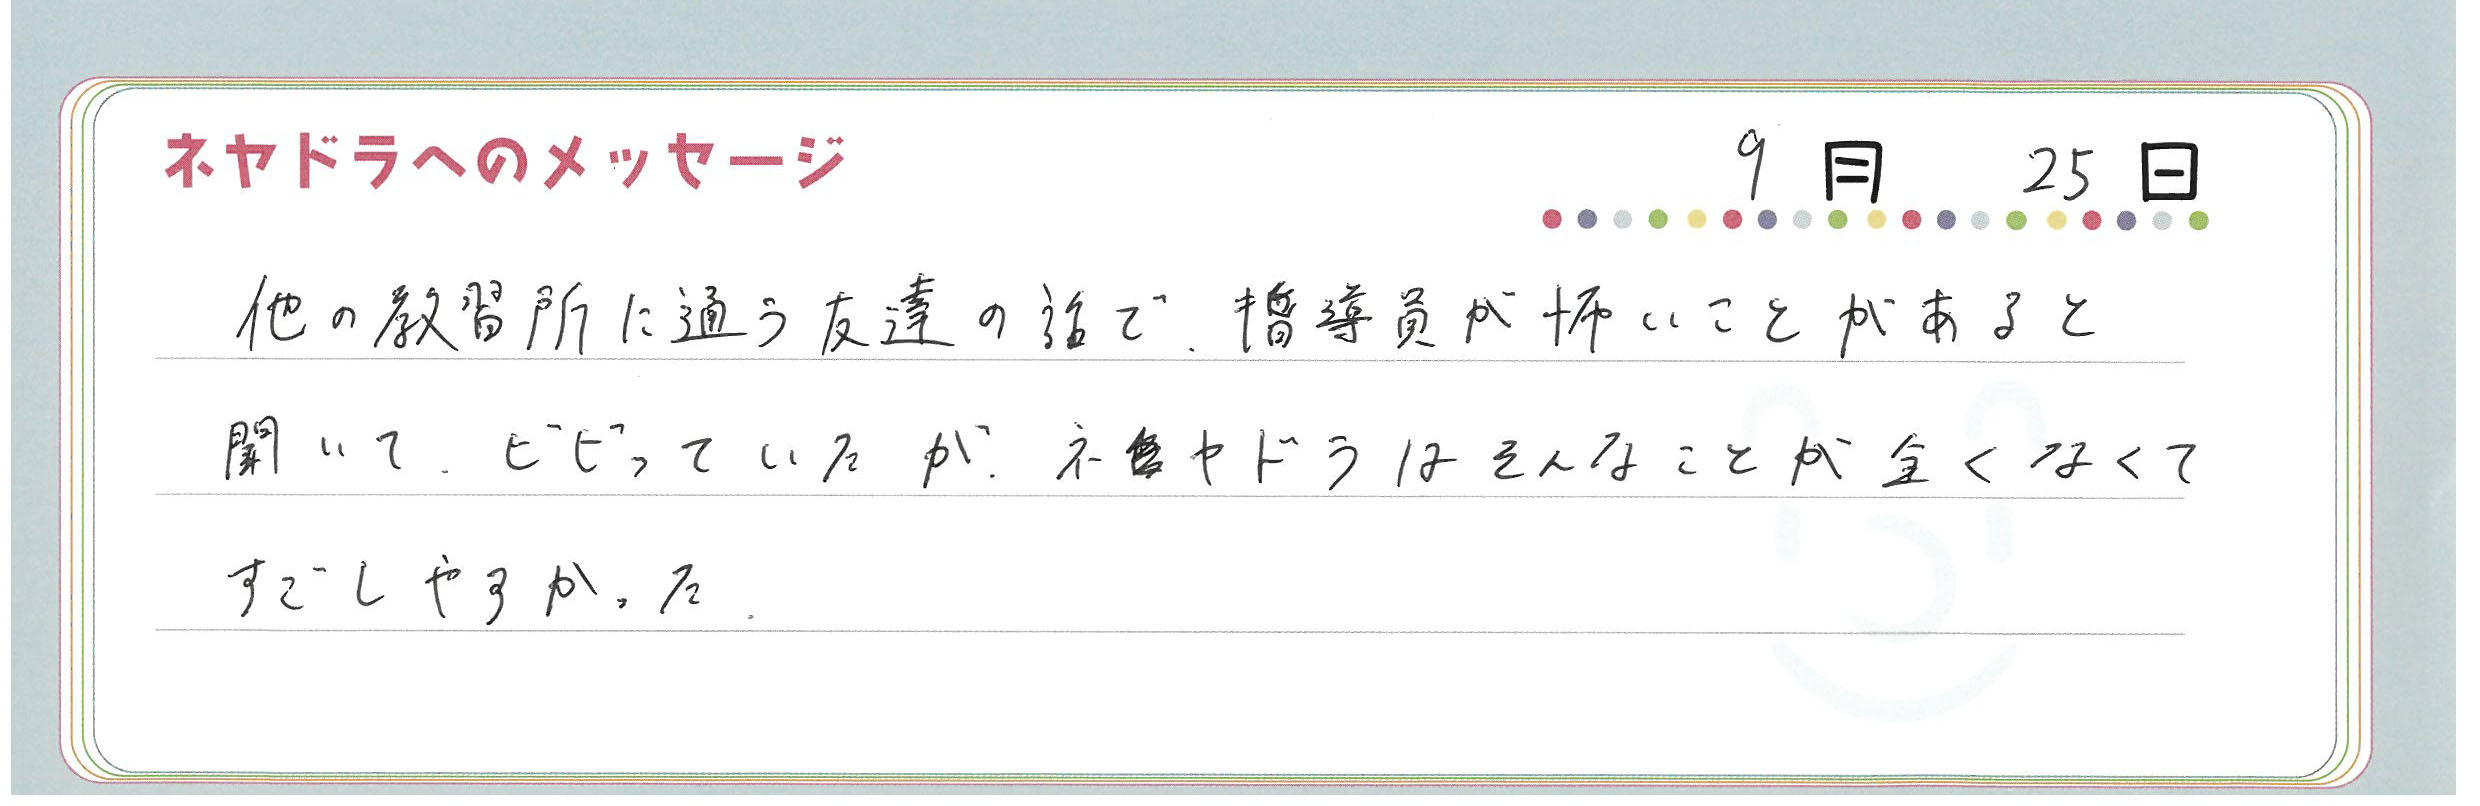 ネヤドラへのメッセージ
9月 25日
他の教習所に通う友達の話で、指導員が怖いことがあると
聞いて、ビビっていたが、ネヤドラはそんなことが全くなくて
すごしやすかった。